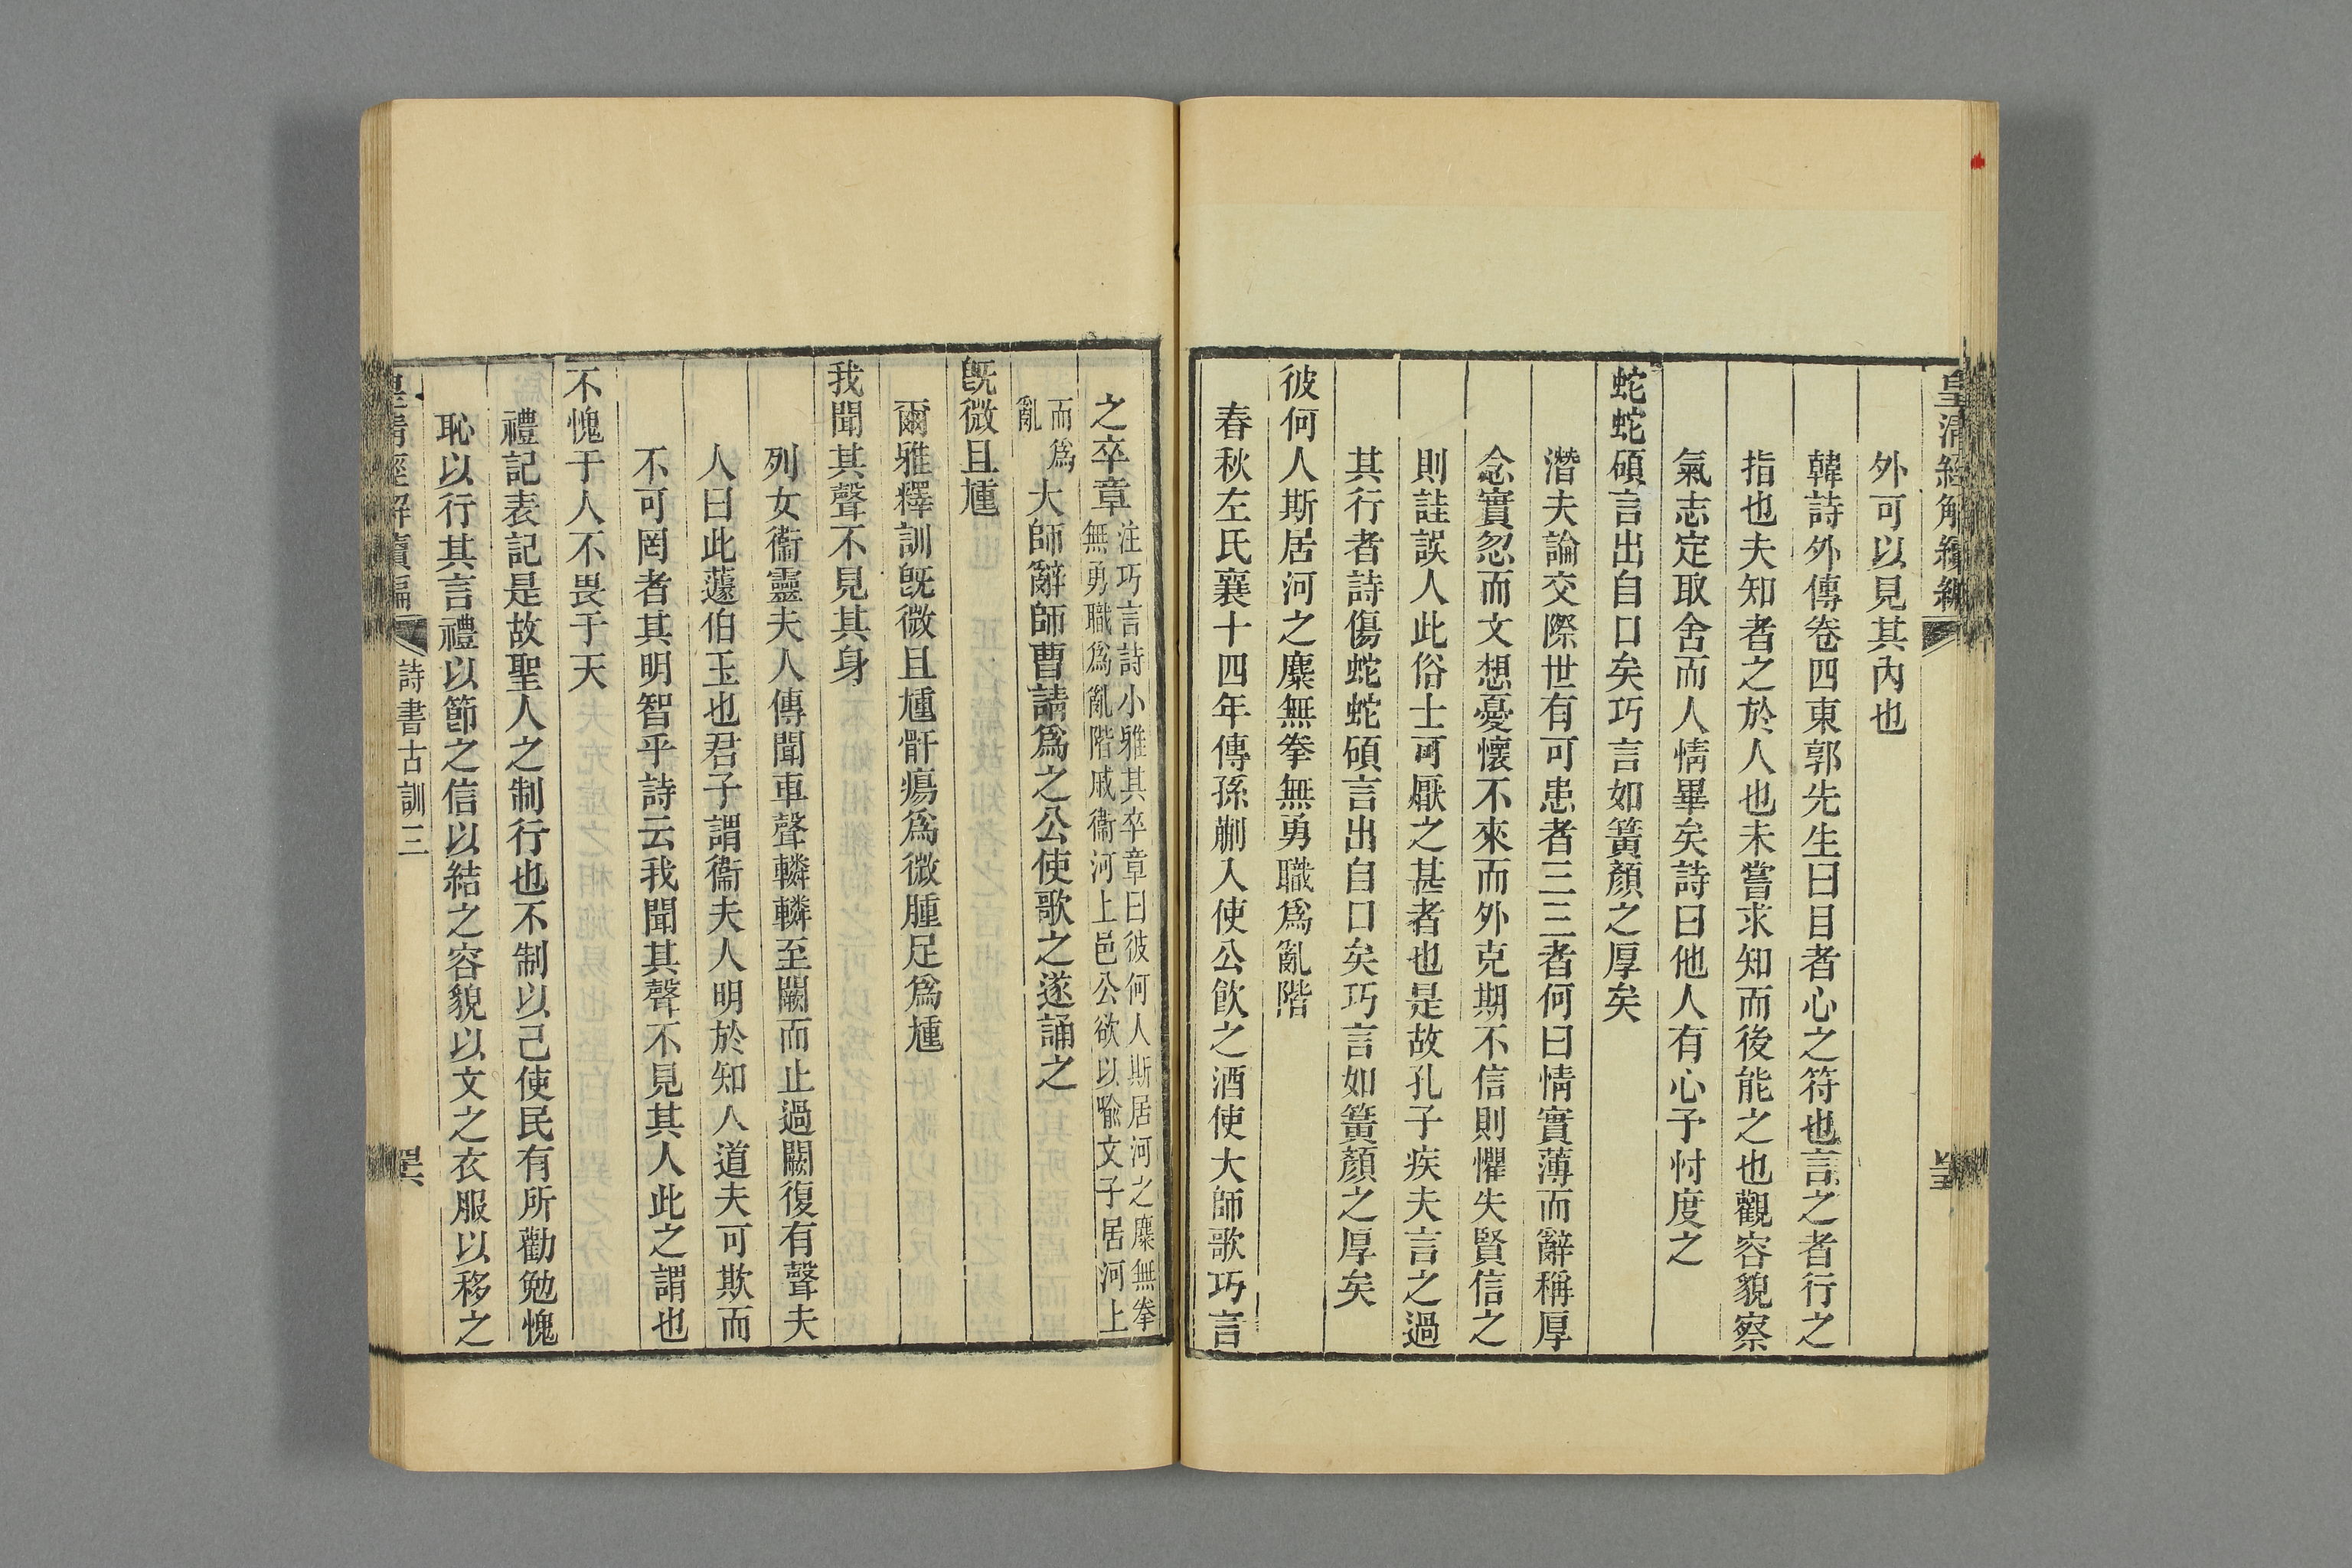 皇清經解續編
外可以見其內也
韓詩外傳卷四東郭先生曰目者心之符也言之者行之
指也夫知者之於人也未嘗求知而後能之也觀容貌察
氣志定取舍而人情畢矣詩曰他人有心予忖度之
蛇蛇碩言出自口矣巧言如簧顏之厚矣
潛夫論交際世有可患者三三者何曰情實薄而辭稱厚
念實忽而文想憂懷不來而外克期不信則懼失賢信之
則詿誤人此俗士可厭之甚者也是故孔子疾夫言之過
其行者詩傷蛇蛇碩言出自口矣巧言如簧顏之厚矣
彼何人斯居河之麋無拳無勇職爲亂階
春秋左氏襄十四年傳孫蒯入使公飮之酒使大師歌巧言
之卒章注巧言詩小雅其卒章曰彼何人斯居河之麋無拳
無勇職爲亂階戚衞河上邑公欲以喻文子居河上
而爲
亂
大師辭師曹請爲之公使歌之遂誦之
旣微且尰
爾雅釋訓旣微且尰骭瘍爲微腫足爲尰
我聞其聲不見其身
列女衞靈夫人傳聞車聲轔轔至闕而止過闕復有聲夫
人曰此蘧伯玉也君子謂衞夫人明於知人道夫可欺而
不可罔者其明智乎詩云我聞其聲不見其人此之謂也
不愧于人不畏于天
禮記表記是故聖人之制行也不制以己使民有所勸勉愧
恥以行其言禮以節之信以結之容貌以文之衣服以移之
皇清經解續編
詩書古訓三